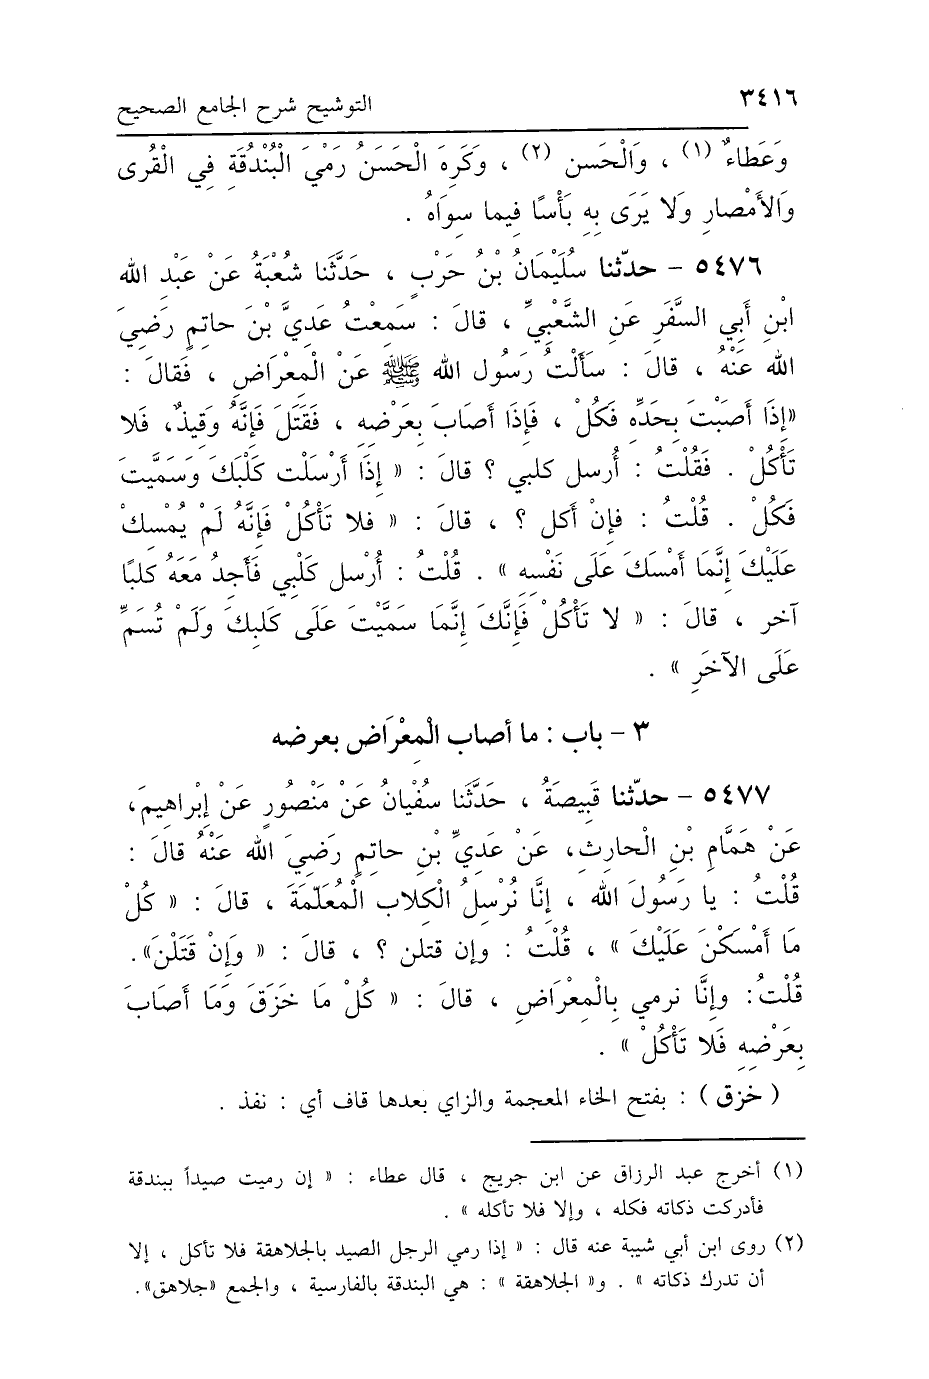 ٣٤١٦
التوشيح شرح الجامع الصحيح
وَعَطَاءٌ (١) ، وَالْحَسن (٢) ، وَكَرِهَ الْحَسَنُ رَمْيَ الْبُنْدُقَةِ فِي الْقُرى
وَالأَمْصارِ وَلا يَرَى بِهِ بَأْسًا فِيما سِوَاهُ .
٥٤٧٦ - حدّثنا سُلَيْمَانُ بْنُ حَرْبٍ ، حَدَّثَنا شُعْبَةُ عَنْ عَبْدِ الله
ابْنِ أَبِي السَّفَرِ عَنِ الشَّعْبِيِّ ، قالَ : سَمِعْتُ عَدِيَّ بْنَ حاتِمٍ رَضِيَ
الله عَنْهُ ، قالَ : سَأَلْتُ رَسُول الله ﷺ عَنْ الْمِعْرَاضِ ، فَقالَ :
«إِذَا أَصَبْتَ بِحَدِّهِ فَكُلْ ، فَإِذَا أَصَابَ بِعَرْضِهِ ، فَقَتَلَ فَإِنَّهُ وَقِيذٌ، فَلا
تَأْكُلْ . فَقُلْتُ : أُرسل كلبي ؟ قالَ : « إِذَا أَرْسَلْت كَلْبَكَ وَسَمَّيتَ
فَكُلْ . قُلْتُ : فإنْ أكل ؟ ، قالَ : « فلا تَأْكُلْ فَإِنَّهُ لَمْ يُمْسِكْ
عَلَيْكَ إِنَّمَا أَمْسَكَ عَلَى نَفْسِهِ » . قُلْتُ : أُرْسِل كَلْبِي فَأَجِدُ مَعَهُ كلبًا
آخر ، قالَ : « لا تَأْكُلْ فَإِنَّكَ إِنَّمَا سَمَّيْتَ عَلَى كَلبِكَ وَلَمْ تُسَمِّ
عَلَى الآخَرِ » .
٣ - باب : ما أصاب الْمِعْرَاض بعرضه
٥٤٧٧ - حدّثنا قَبِيصَةُ ، حَدَّثَنَا سُفْيانُ عَنْ مَنْصُورٍ عَنْ إِبْراهِيمَ،
عَنْ هَمَّامِ بْنِ الْحارِثِ، عَنْ عَدِيِّ بْنِ حاتِمٍ رَضِيَ الله عَنْهُ قالَ :
قُلْتُ : يا رَسُولَ الله ، إِنَّا نُرْسِلُ الْكِلاب الْمُعَلّمَةَ ، قالَ : « كُلْ
مَا أَمْسَكْنَ عَلَيْكَ » ، قُلْتُ : وإن قتلن ؟ ، قالَ : « وَإِنْ قَتَلْنَ».
قُلْتُ: وإنَّا نرمي بِالْمِعْرَاضِ ، قالَ : « كُلْ مَا خَزَقَ وَمَا أَصَابَ
بِعَرْضِهِ فَلا تَأْكُلْ » .
( خزق ) : بفتح الخاء المعجمة والزاي بعدها قاف أي : نفذ .
(١) أخرج عبد الرزاق عن ابن جريج ، قال عطاء : « إن رميت صيداً ببندقة
فأدركت ذكاته فكله ، وإلا فلا تأكله » .
(٢) روى ابن أبي شيبة عنه قال : « إذا رمي الرجل الصيد بالجلاهقة فلا تأكل ، إلا
أن تدرك ذكاته » . و« الجلاهقة » : هي البندقة بالفارسية ، والجمع «جلاهق».